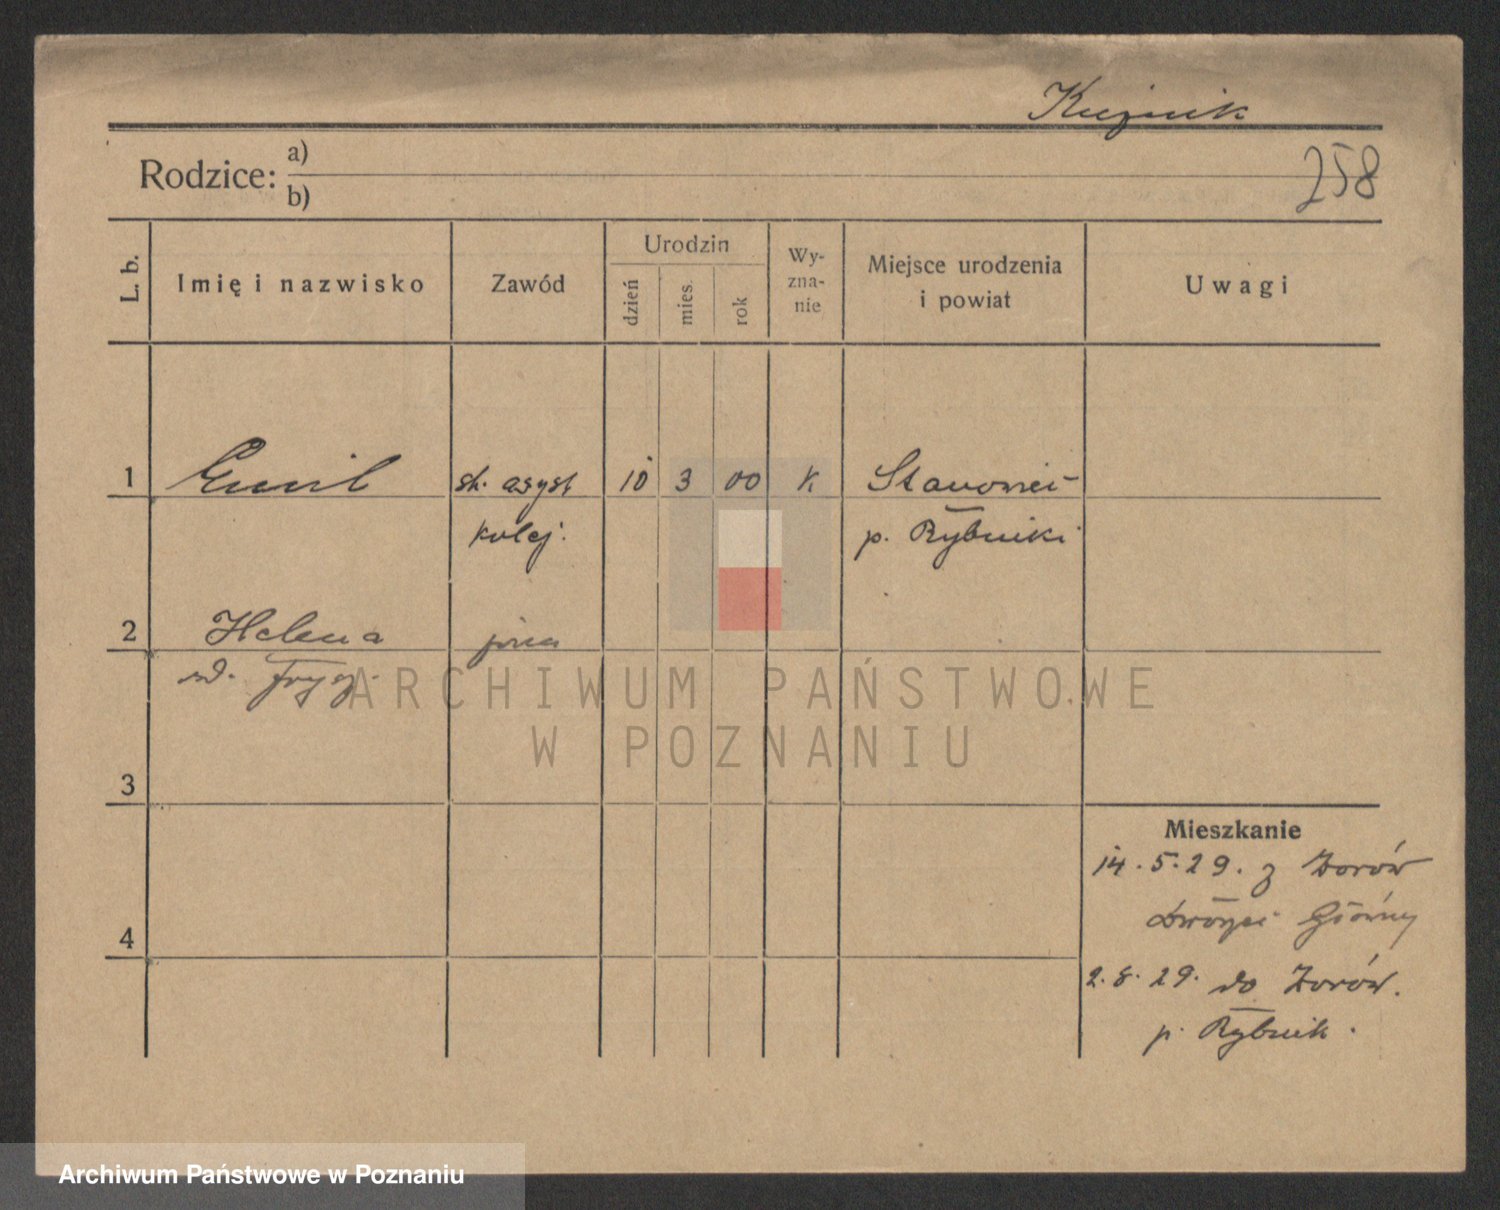 Kuźnik
258
Rodzice: a)
b)
L. b.
Imię i nazwisko
Zawód
Urodzin
dzień
mies.
rok
Wy-
zna-
nie
Miejsce urodzenia
i powiat
Uwagi
1 Emil st. asyst 10 3 00 K
kolej. p. Rybniki
2 Helena żona
ARCHIWUM PAŃSTWOWE
W POZNANIU
3
Mieszkanie
14.5.29. z Żorów
Główny
4
2.8.29. do Żorów.
p. Rybnik.
Archiwum Państwowe w Poznaniu